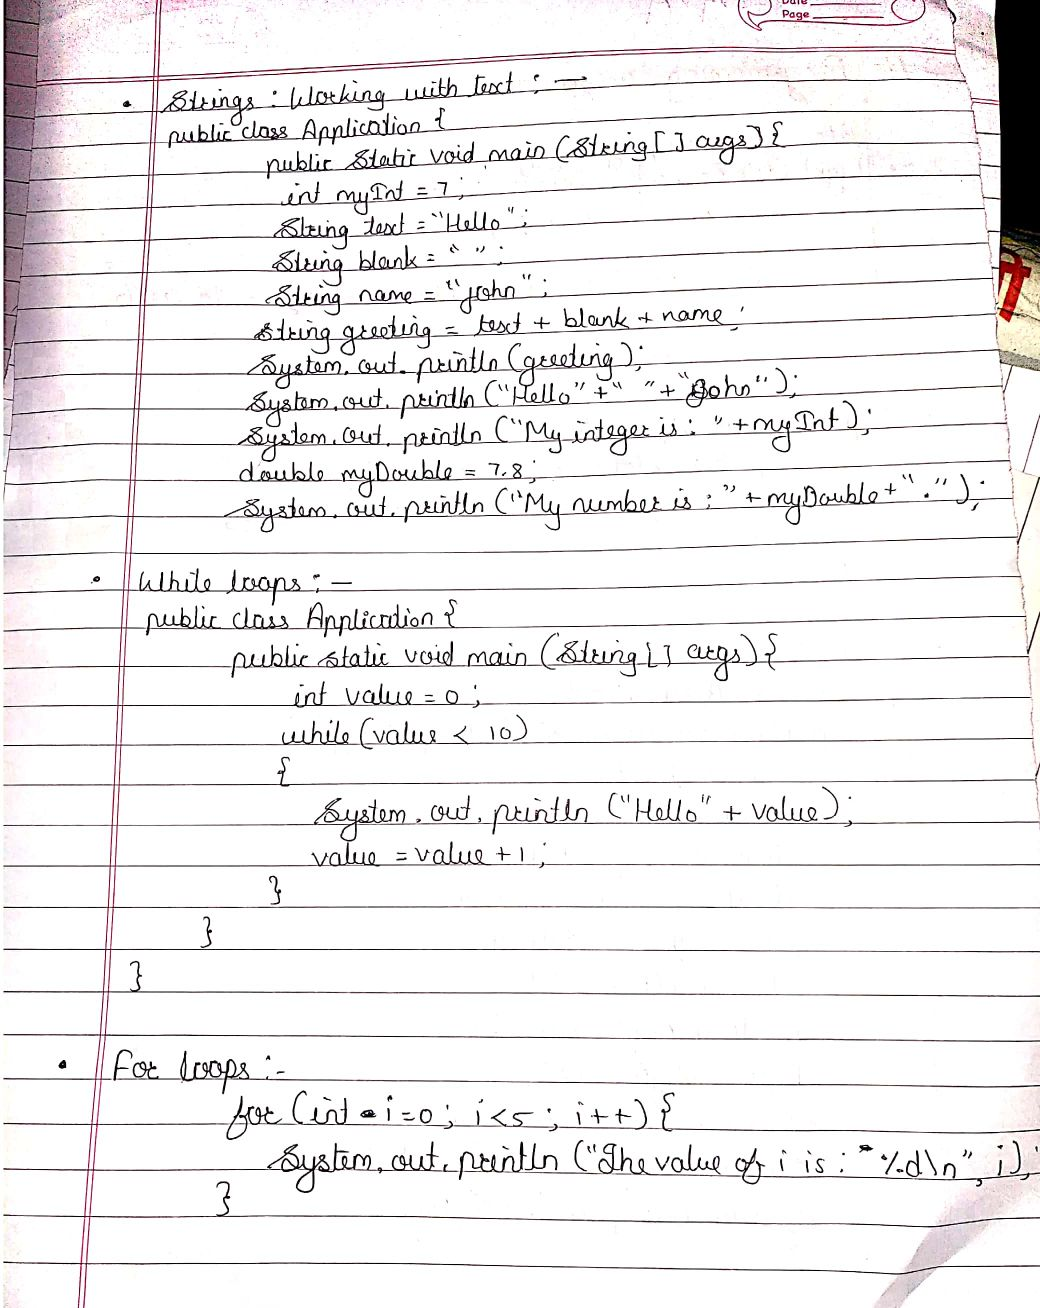 Date
Page
• Strings : Working with text : —
public class Application {
public static void main (String [ ] args) {
int myInt = 7 ;
String text = "Hello" ;
String blank = " " ;
String name = "John" ;
String greeting = text + blank + name ;
System. out. println (greeting) ;
System. out. println ("Hello" + " " + "John") ;
System. out. println ("My integer is : " + myInt) ;
double myDouble = 7.8 ;
System. out. println ("My number is : " + myDouble + " . ") ;
• While loops : —
public class Application {
public static void main (String [ ] args) {
int value = 0 ;
while (value < 10)
{
System. out. println ("Hello" + value) ;
value = value + 1 ;
}
}
}
• For loops :-
for (int i=0 ; i<5 ; i++) {
System. out. println ("The value of i is : %d\n", i) ;
}